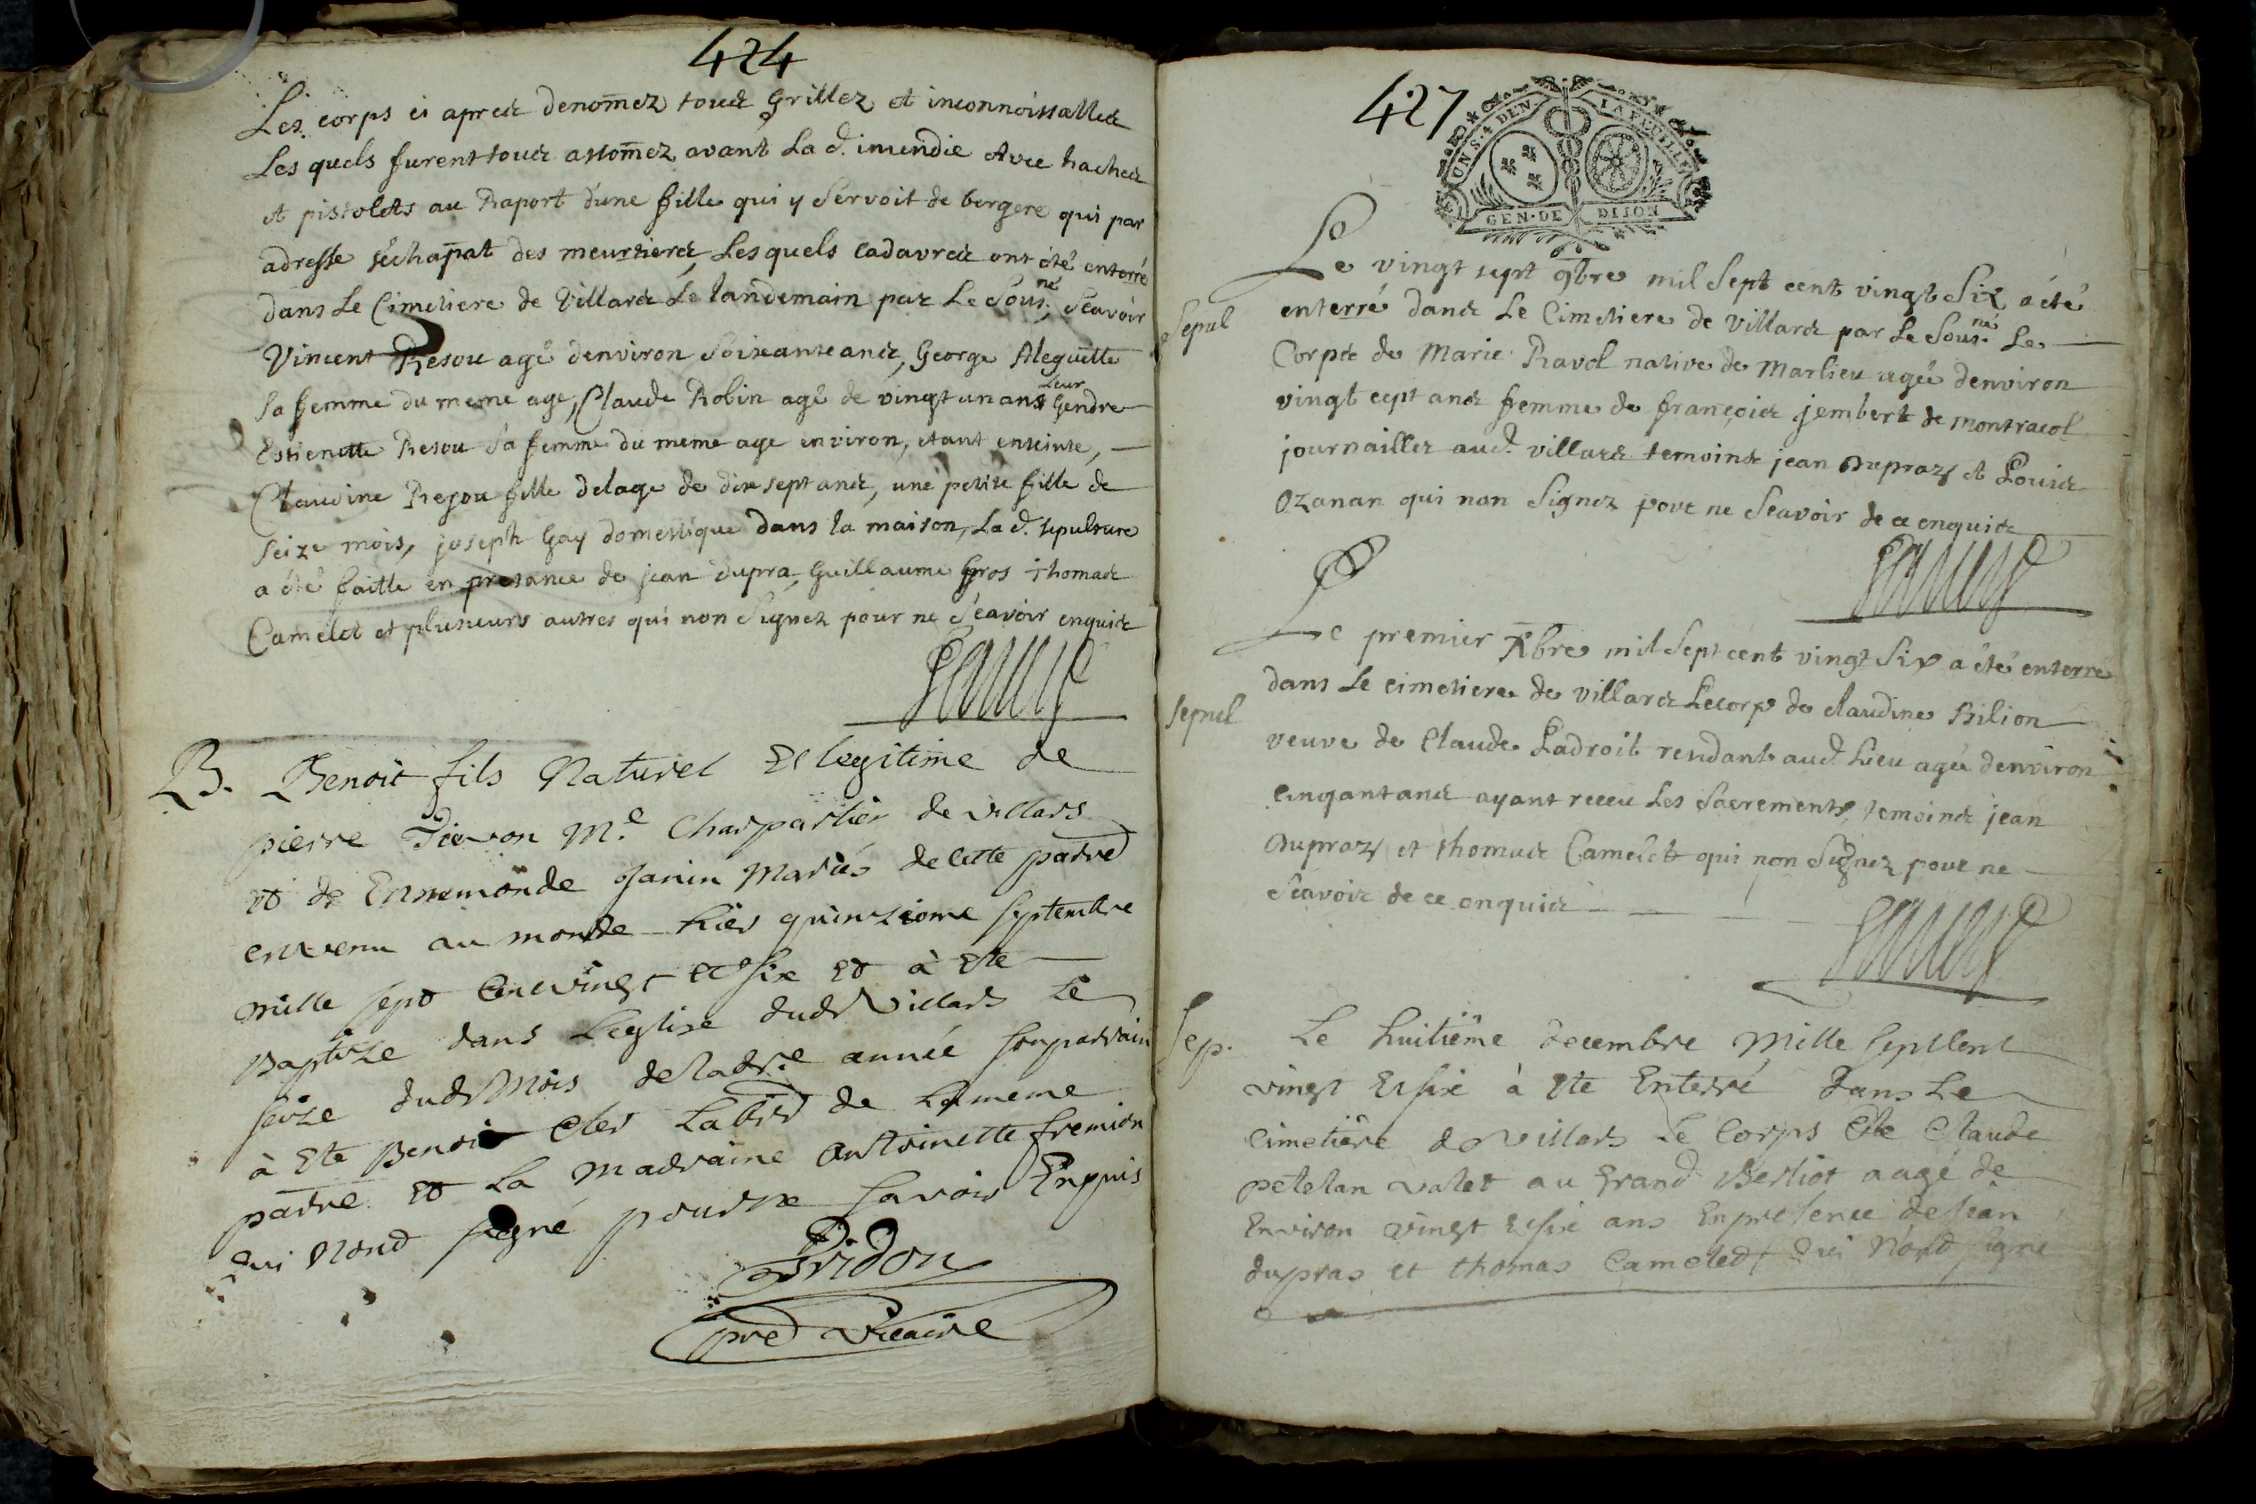 424
Les corps ci apres denomez tous Grillez et inconnoissables
Les quels furent tous assomez avant La d. incendie Avec haches
et pistolets au Raport d'une fille qui y Servoit de bergere qui par
adresse s'echapat des meurtriers, Les quels cadavres ont été enterré
dans Le Cimetiere de Villars Le landemain par Le Sous.né, Scavoir
Vincent Resou agé denviron Soixante ans, George Meguette
sa femme du meme age, Claude Robin agé de vingt un ans Leur Gendre
Estienette Resou Sa femme du meme age environ, etant enceinte,
Claudine Resou fille delage de dix sept ans, une petite fille de
seize mois, joseph Gay domestique dans la maison, La d. sepulture
a été faitte en presance de jean dupra, Guillaume Gros thomas
Camelet et plusieurs autres qui non Signez pour ne Scavoir enquis
B. Benoit fils Naturel Et legitime de
pierre Tievon M.e Charpantier de villars
et de Ennemonde Janin Mariés de cette parre
est venu au monde hier quinzieme septembre
mille sept Cent vingt et six et à Ete
Baptize dans Leglise dud Villars Le
seize dud Mois de lad.e année son parrain
à Ete Benoit Cler Labr de La meme
parre et La Madraine Antoinette fremion
qui Nond signé pour ne savoir Enquis
Bridon
pre Vicaire
427
UN S. 4 DEN. LA FEUILLE
GEN. DE DIJON
Le vingt sept 9bre mil Sept cent vingt Six a été
Sepul
enterré dans Le Cimetiere de Villars par Le Sous.né Le
Corps de Marie Ravol native de Marlieu agée denviron
vingt cept ans femme de françois jembert de Montracol
journaillier aud. villars temoins jean Dupraz et Louis
Ozanan qui non Signez pour ne Scavoir de ce enquis
Le premier Xbre mil Sept cent vingt Six a été enterré
Sepul
dans Le cimetiere de villars Le corp de claudine Bilion
veuve de Claude Ladroit rendant aud. Lieu agée denviron
Cinqant ans ayant receu Les Sacrements, temoins jean
Dupraz et thomas Camelet qui non Signez pour ne
Scavoir de ce enquis
Sep. Le huitiême decembre Mille sept Cent
vingt Et six à Ete Enterré dans Le
Cimetière de villars Le Corps de Claude
petetan valet au grand Berliot aagé de
Environ vingt Et six ans En presence de Jean
dupras et thomas Cameled qui Nond signé